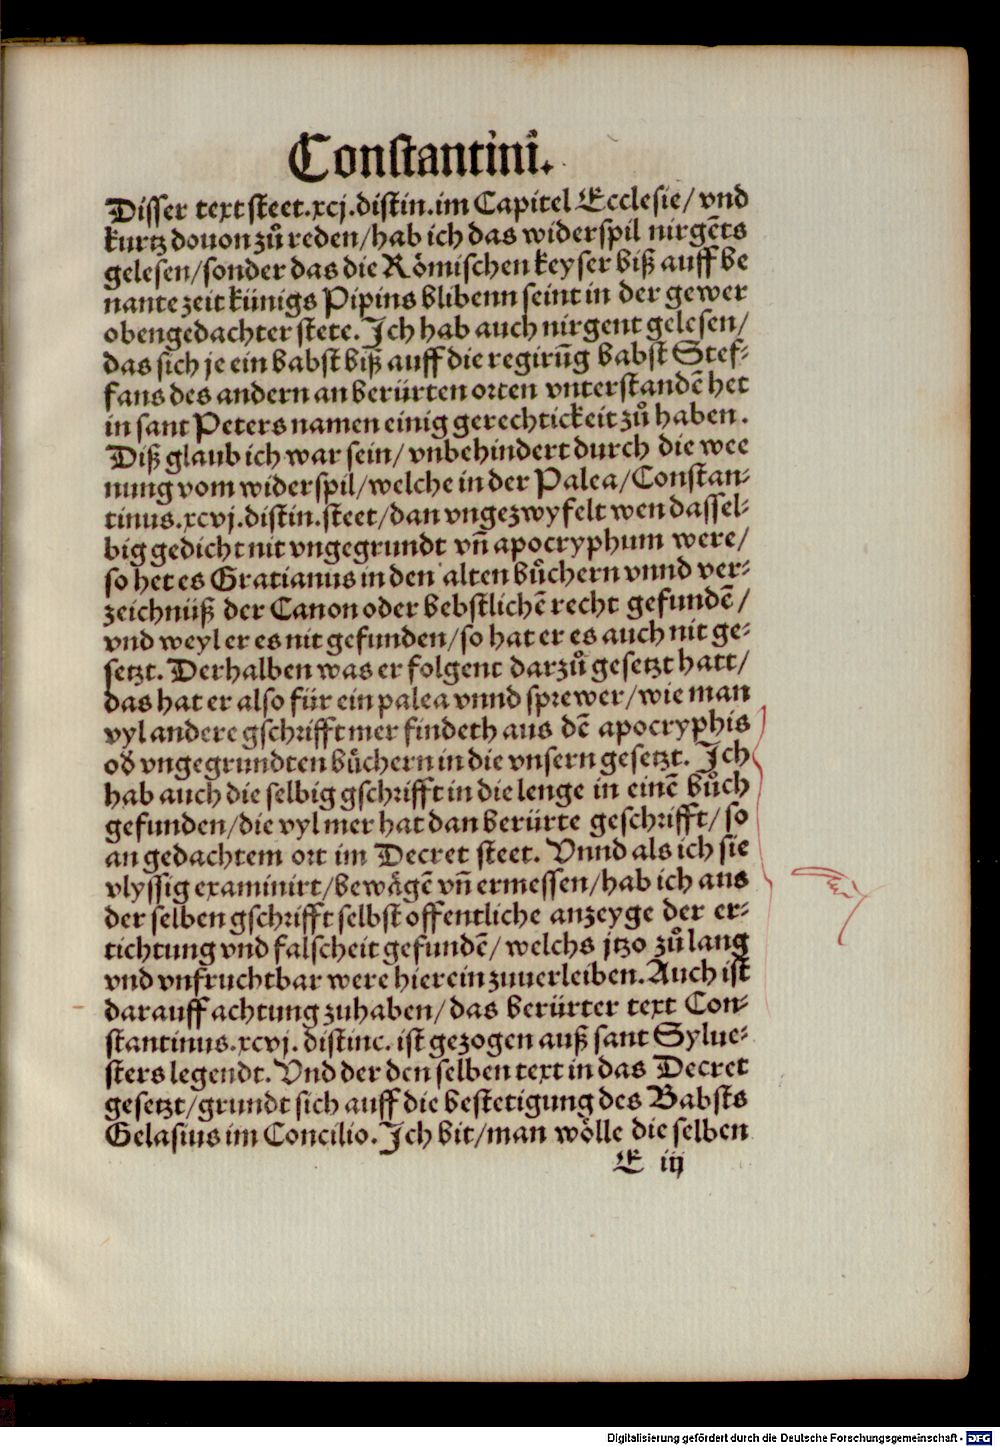 Constantini.
Disser text steet.xcj.distin.im Capitel Ecclesie/ vnd
kurtz douon zuͦ reden/hab ich das widerspil nirgēts
gelesen/sonder das die Roͤmischen keyser biß auff be
nante zeit künigs Pipins blibenn seint in der gewer
obengedachter stete. Ich hab auch nirgent gelesen/
das sich je ein babst biß auff die regirūg babst Stef⸗
fans des andern an berürten orten vnterstandē het
in sant Peters namen einig gerechtickeit zuͦ haben.
Diß glaub ich war sein/ vnbehindert durch die wee
nung vom widerspil/welche in der Palea/Constan⸗
tinus.xcvj.distin.steet/dan vngezwyfelt wen dassel⸗
big gedicht nit vngegrundt vn̄ apocryphum were/
so het es Gratianus in den alten buͤchern vnnd ver⸗
zeichnüß der Canon oder bebstlichē recht gefundē/
vnd weyl er es nit gefunden/so hat er es auch nit ge⸗
setzt. Derhalben was er folgent darzuͦ gesetzt hatt/
das hat er also für ein palea vnnd sprewer/wie man
vyl andere gschrifft mer findeth aus dē apocryphis
od̄ vngegrundten buͤchern in die vnsern gesetzt. Ich
hab auch die selbig gschrifft in die lenge in einē buͦch
gefunden/die vyl mer hat dan berürte geschrifft/ so
an gedachtem ort im Decret steet. Vnnd als ich sie
vlyssig examinirt/bewaͤgē vn̄ ermessen/hab ich aus
der selben gschrifft selbst offentliche anzeyge der er⸗
tichtung vnd falscheit gefundē/ welchs jtzo zuͦ lang
vnd vnfruchtbar were hierein zuuerleiben. Auch ist
darauff achtung zuhaben/das berürter text Con⸗
stantinus.xcvj. distinc. ist gezogen auß sant Sylue⸗
sters legendt. Vnd der den selben text in das Decret
gesetzt/grundt sich auff die bestetigung des Babsts
Gelasius im Concilio. Ich bit/man woͤlle die selben
E iij
Digitalisierung gefördert durch die Deutsche Forschungsgemeinschaft - DFG